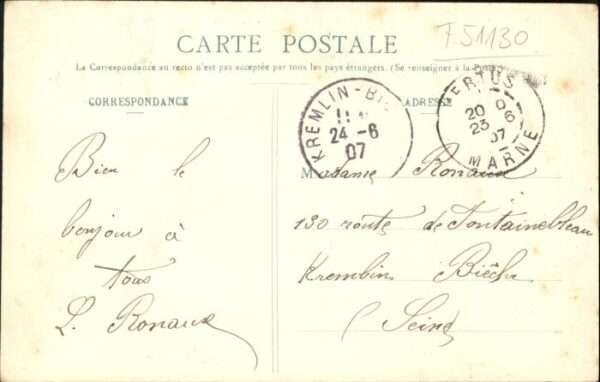 F51130
CARTE POSTALE
La Correspondance au recto n'est pas acceptée par tous les pays étrangers. (Se renseigner à la Poste)
CORRESPONDANCE
ADRESSE
KREMLIN-BI
24-6
07
VERTUS
20
23 6
07
MARNE
Bien le
bonjour à
tous
L. Ronaux
Madame Ronaux
130 route de Fontainebleau
Kremlin Bicêtre
(Seine)